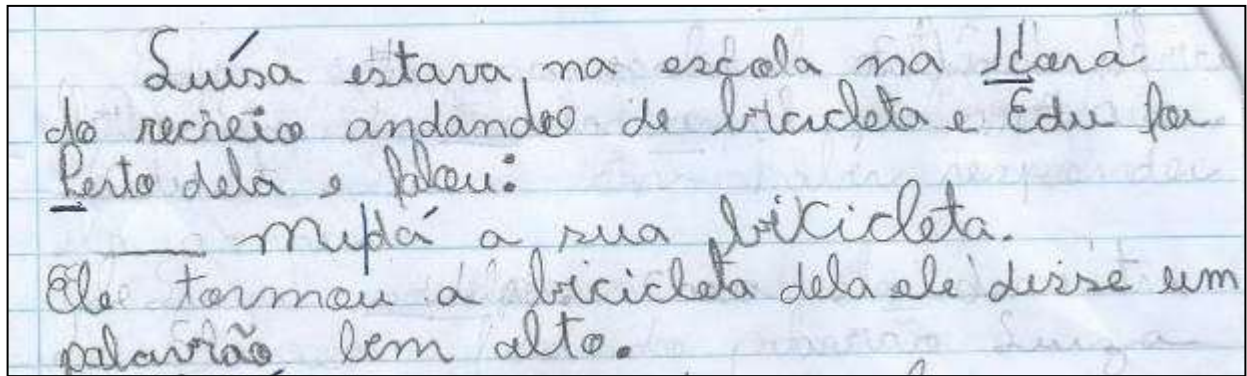 Luísa estava na escola na Hora
do recreio andando de bicicleta e Edu foi
Perto dela e falou:
____ midá a sua bicicleta.
Ele tormou a bicicleta dela ele disse um
palavrão bem alto.